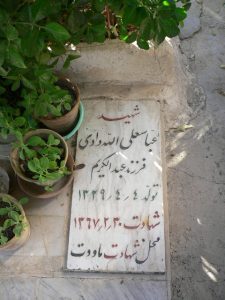 شهید
عباسعلی الله دادی
فرزند عبدالکریم
تولد ۱۳۳۹٫۴٫۴
شهادت ۱۳۶۷٫۲٫۳۰
محل شهادت ماووت